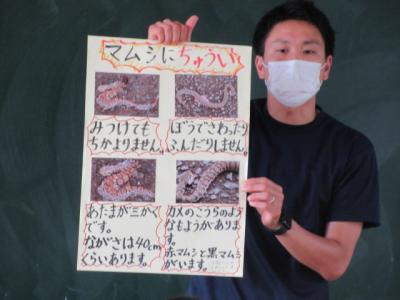 マムシにちゅうい
みつけても
ちかよりません。
ぼうでさわったり
ふんだりしません。
あたまが三かく
です。
ながさは40cm
くらいあります。
カメのこうらのよう
なもようがありま
す。
赤マムシと黒マムシ
がいます。